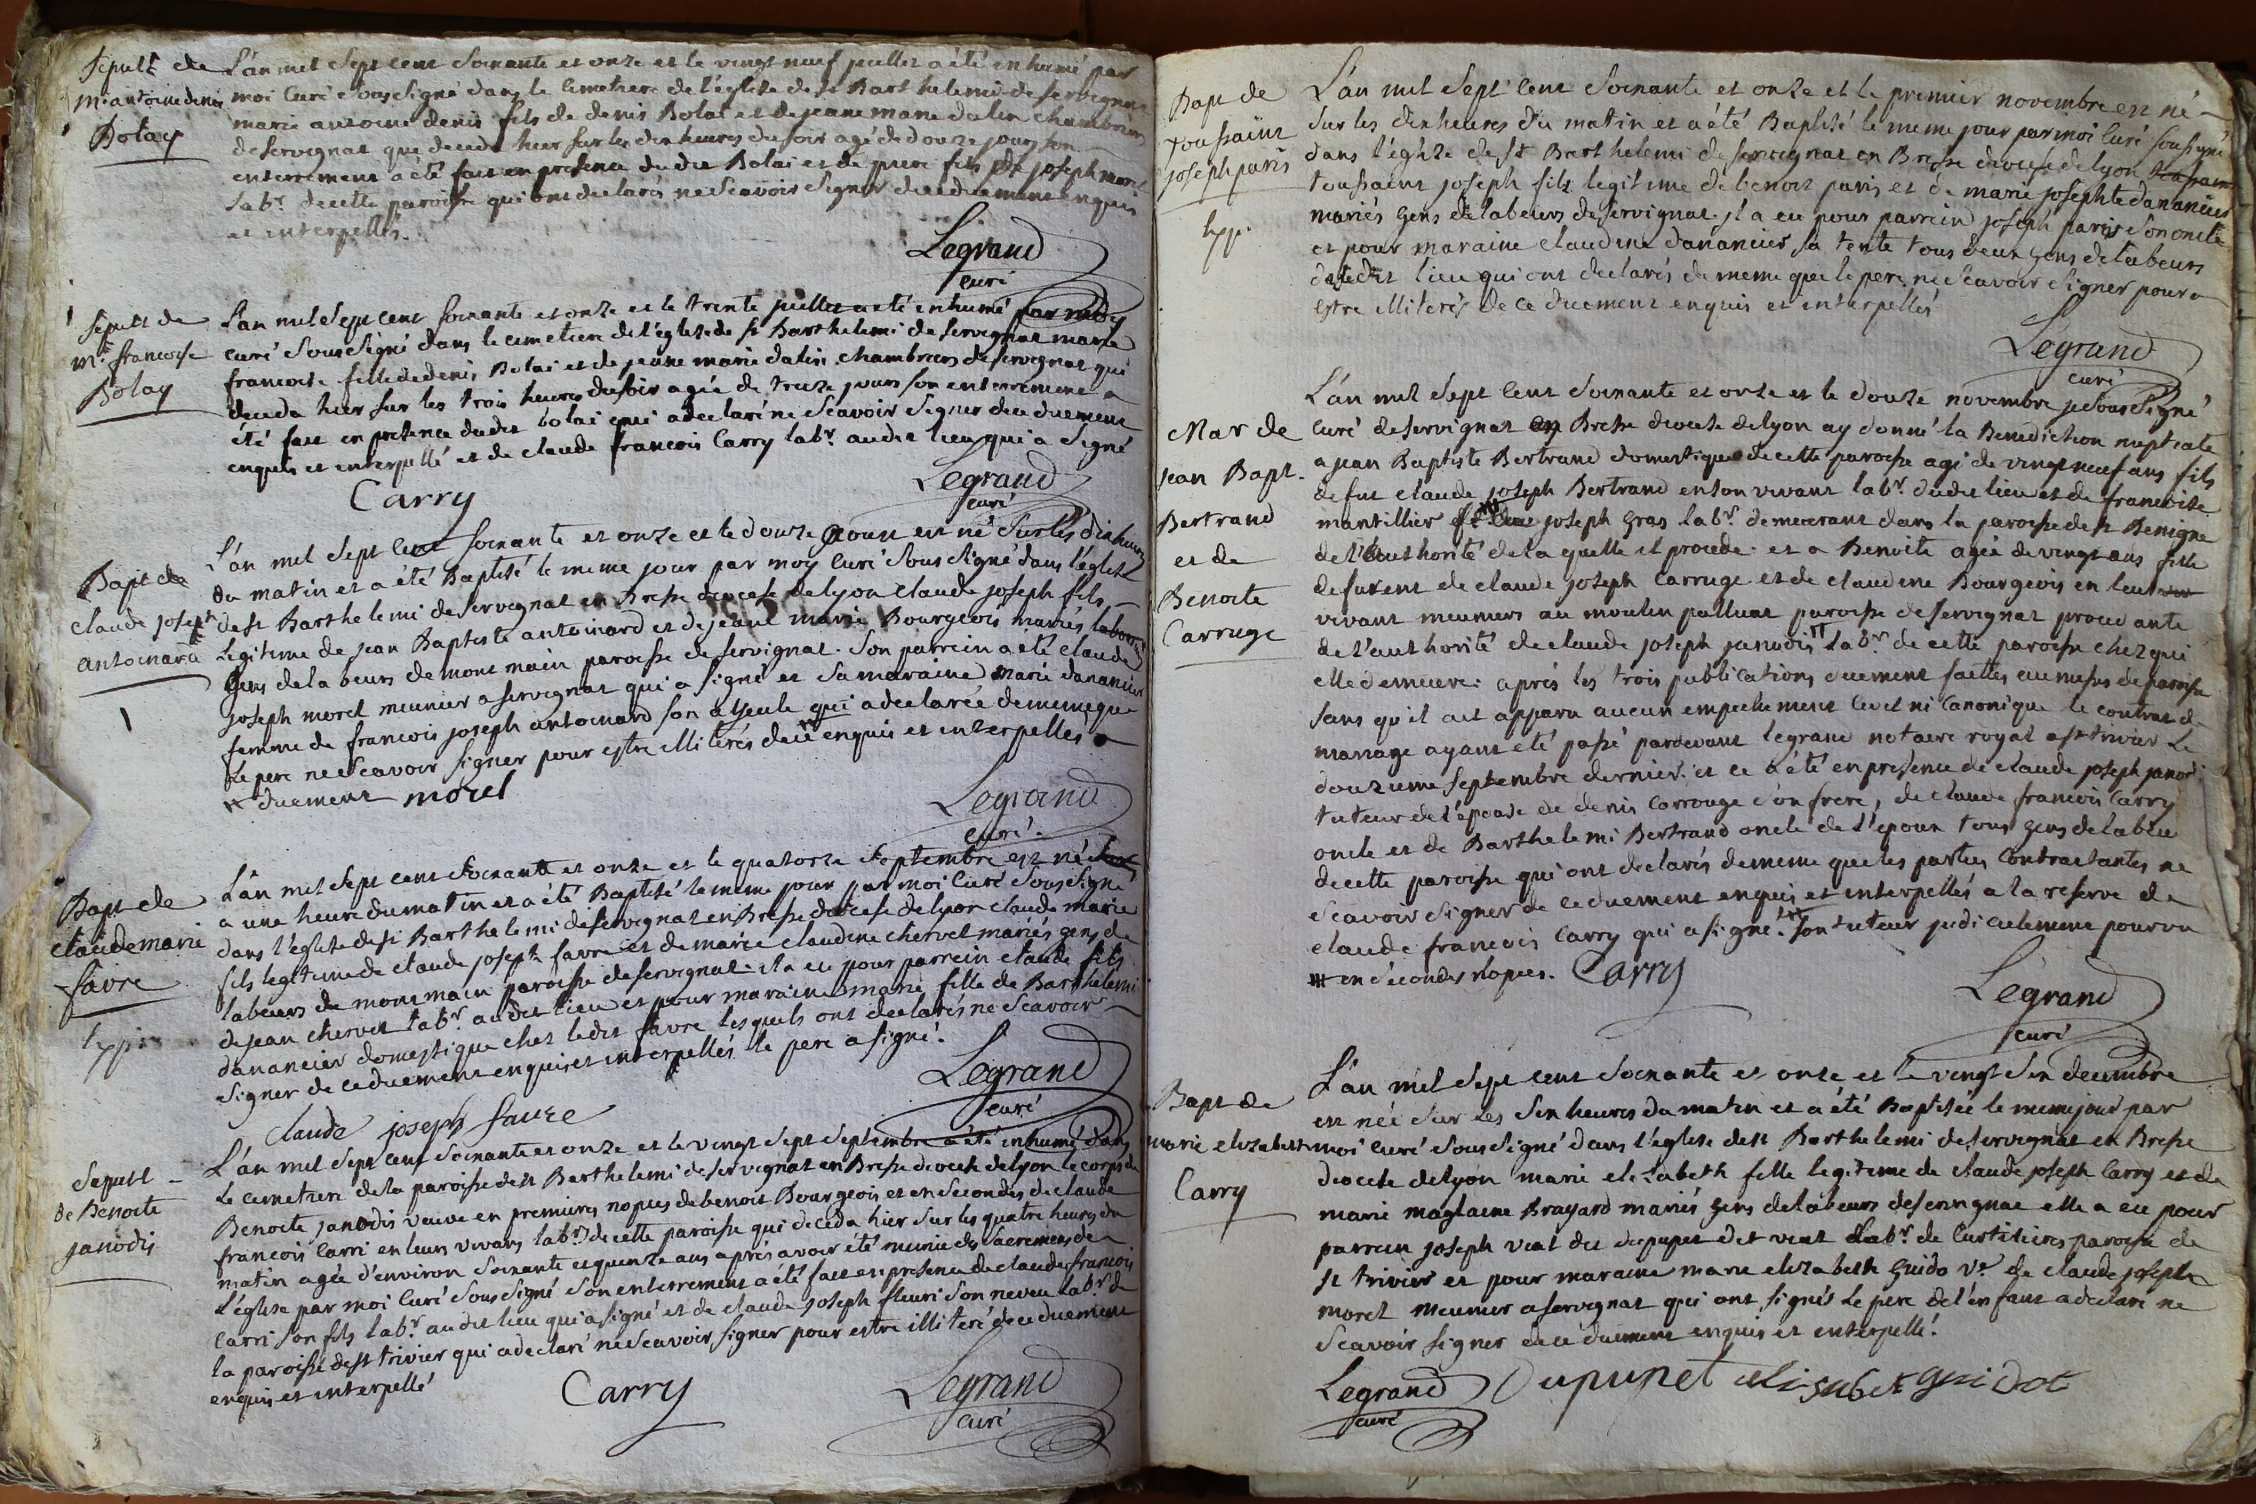 Sepult de
m: antoine denis
Bolay
L'an mil sept cent soixante et onze et le vingt neuf juillet a été inhumé par
moi curé soussigné dans le cimetiere de l'église de st Barthelemi de servignat
marie antoine denis fils de denis Bolai et de jeanne marie dalin chambriers
de servignat qui deceda hier sur les dix heures du soir agé de douze jours son
enterrement a été fait en presence du dit Bolai et de pierre fils de joseph morel
labr. de cette paroisse qui ont declarés ne scavoir signer de ce duement enquis
et interpellés.
Legrand
curé
Sepult de
m: francoise
Bolay
L'an mil sept cent soixante et onze et le trente juillet a été inhumé par moy
curé soussigné dans le cimetiere de l'église de st Barthelemi de servignat marie
francoise fille de denis Bolai et de jeanne marie dalin chambriers de servignat qui
deceda hier sur les trois heures du soir agée de treize jours son enterrement a
été fait en presence du dit bolai qui a declaré ne scavoir signer de ce duement
enquis et interpellé et de claude francois Carry labr. au dit lieu qui a signé
Carry
Legrand
curé
Bapt de
claude joseph
antoinard
L'an mil sept cent soixante et onze et le douze aoust est né sur les dix heures
du matin et a été Baptisé le meme jour par moy curé soussigné dans l'églize
de st Barthelemi de servignat en Bresse diocese de lyon claude joseph fils
legitime de jean Baptiste antoinard et de jeanne marie Bourgeois mariés
gens de labeurs de montmain paroisse de servignat. son parrein a été claude
joseph morel meunier a servignat qui a signé et sa maraine marie danancier
femme de francois joseph antoinard son ayeule qui a declarée de meme que
le pere ne scavoir signer pour estre illiterés de ce enquis et interpelles
duement morel
Legrand
curé
Bapt de
claude marie
favre
L'an mil sept cent soixante et onze et le quatorze septembre est né
a une heure du matin et a été Baptisé le meme jour par moi curé soussigné
dans l'église de st Barthelemi de servignat en Bresse diocese de lyon claude marie
fils legitime de claude joseph favre et de marie claudine chervet mariés gens de
labeurs de montmain paroisse de servignat. il a eu pour parrein claude fils
de jean chervet labr. au dit lieu et pour maraine marie fille de Barthelemi
danancier domestique chez le dit favre lesquels ont declarés ne scavoir
signer de ce duement enquis et interpellés le pere a signé.
Legrand
curé
claude joseph favre
Sepult
de Benoite
janodis
L'an mil sept cent soixante et onze et le vingt sept septembre a été inhumé dans
le cimetiere de la paroisse de st Barthelemi de servignat en Bresse diocese de lyon le corps de
Benoite janodis veuve en premieres nopces de benoit Bourgeois et en secondes de claude
francois Carri en leurs vivans labrs. de cette paroisse qui deceda hier sur les quatre heures du
matin agée d'environ soixante et quinze ans après avoir été munie des sacremens de
l'église par moi curé soussigné son enterrement a été fait en presence de claude francois
carri son fils labr. au dit lieu qui a signé et de claude joseph fleuri son neveu labr. de
la paroisse de st trivier qui a declaré ne scavoir signer pour estre illiteré de ce duement
enquis et interpellé
Carry
Legrand
curé
Bapt de
toussaint
joseph paris
L'an mil sept cent soixante et onze et le premier novembre est né
sur les dix heures du matin et a été Baptisé le meme jour par moi curé soussigné
dans l'églize de st Barthelemi de servignat en Bresse diocese de lyon
toussaint joseph fils legitime de benoit paris et de marie josephte dananciers
mariés gens de labeurs de servignat. il a eu pour parrein joseph paris son oncle
et pour maraine claudine dananciers sa tente tous deux gens de labeurs
du dit lieu qui ont declarés de meme que le pere ne scavoir signer pour
estre illiterés de ce duement enquis et interpellés
Legrand
curé
Mar de
jean Bapt.
Bertrand
et de
Benoite
Carruge
L'an mil sept cent soixante et onze et le douze novembre je soussigné
curé de servignat en Bresse diocese de lyon ay donné la Benediction nuptiale
a jean Baptiste Bertrand domestique de cette paroisse agé de vingt neuf ans fils
de fut claude joseph Bertrand en son vivant labr. du dit lieu et de francoise
mantillier joseph gras labr. demeurant dans la paroisse de st Benigne
de l'authorité de la quelle il procede. et a Benoite agée de vingt ans fille
de furent de claude joseph Carruge et de claudine Bourgeois en leur
vivant meuniers au moulin palluat paroisse de servignat procedante
de l'authorité de claude joseph janodis labr. de cette paroisse chez qui
elle demeure: aprés les trois publications duement faittes aux messes de paroisse
sans qu'il ait apparu aucun empechement civil ni canonique le contrat de
mariage ayant été passé pardevant legrand notaire royal a st trivier le
douzieme septembre dernier. et ce a été en presence de claude joseph janodi
tuteur de l'épouse de denis Carrouge son frere, de claude francois Carry
oncle et de Barthelemi Bertrand oncle de l'epoux tous gens de labeu
de cette paroisse qui ont declarés de meme que les parties contractantes ne
scavoir signer de ce duement enquis et interpellés a la reserve de
claude francois Carry qui a signé. son tuteur judiciellement pourvu
en secondes nopces. Carry
Legrand
curé
Bapt de
marie elizabeth
Carry
L'an mil sept cent soixante et onze et le vingt six decembre
est née sur les six heures du matin et a été Baptisée le meme jour par
moi curé soussigné dans l'église de st Barthelemi de servignat en Bresse
diocese de lyon marie elizabeth fille legitime de claude joseph Carry et de
marie maglaine Brayard mariés gens de labeurs de servignat elle a eu pour
parrein joseph viat dit dupupet dit viat labr. de Curtilieres paroisse de
st trivier et pour maraine marie elizabeth guido ve. de claude joseph
morel meunier a servignat qui ont signés le pere de l'enfant a declaré ne
scavoir signer de ce duement enquis et interpellé.
Legrand
curé
Dupupet elisabet guidot